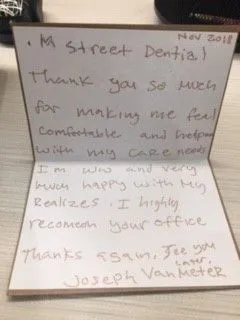 Nov 2018
. M Street Dential
Thank you so much
for making me feel
comfortable and helping
with my care needs
I'm wow and very
much happy with My
Realizes. I highly
recomeon your office
Thanks again, See you
Later,
Joseph VanMeter